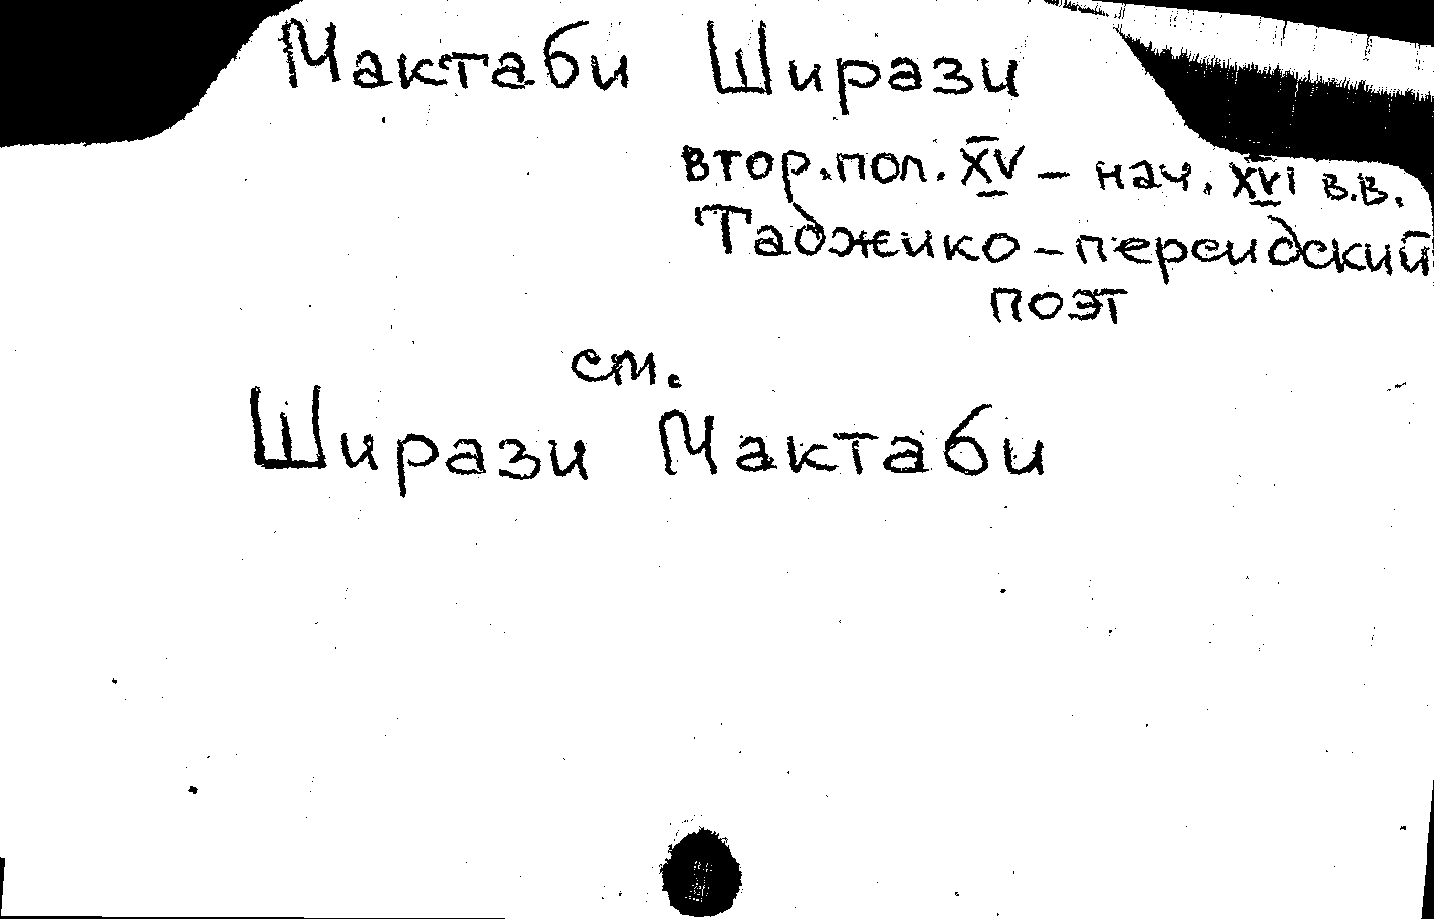 Мактаби Ширази
втор.пол. XV – нач. XVI в.в.
Таджико-персидский
поэт
см.
Ширази Мактаби